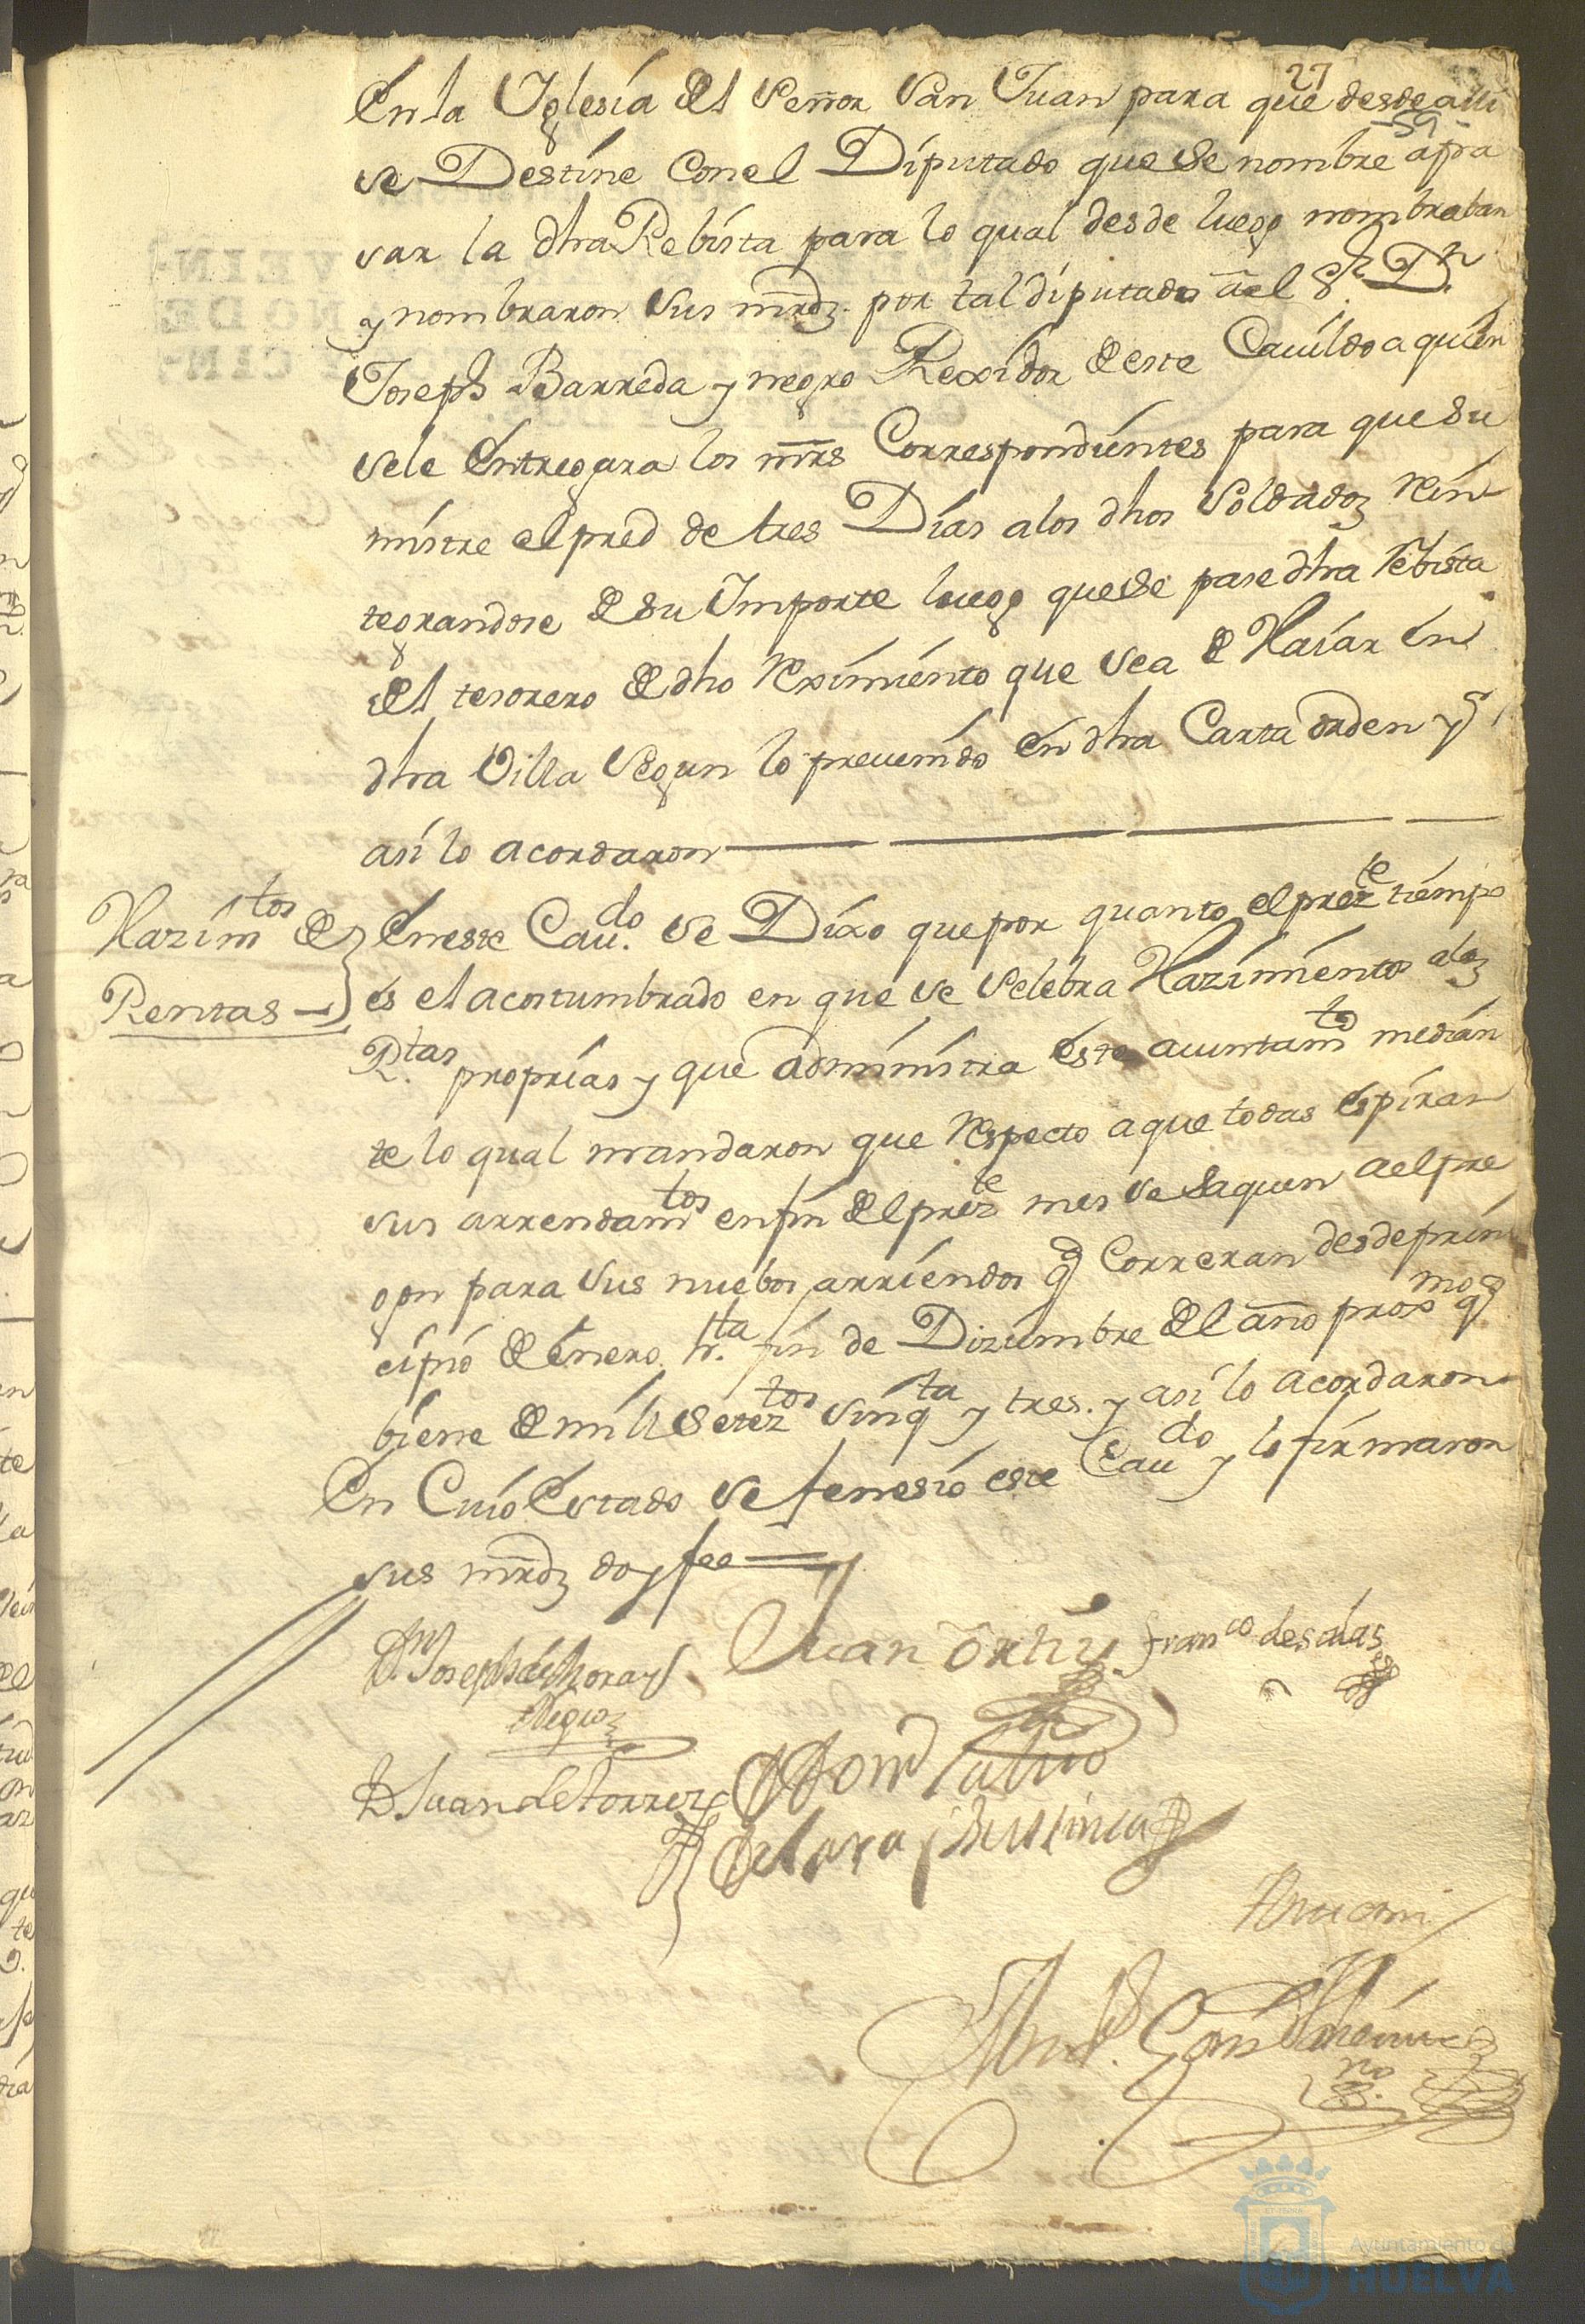 27
59
En la Yglesia del Señor San Juan para que desde alli
se Destine con el Diputado que se nombre a pa
sar la dha Rebista para lo qual desde luego nombraban
y nombraron sus mrdz. por tal diputado a el Sr. Dn.
Joseph Barreda y negro Rexidor de este Cavildo a quien
se le Entregara los mrs Correspondientes para que su
mistre el pred de tres Dias a los dhos Soldados Rein
tegrandose de su Importe luego que se pase dha Rebista
del tesorero de dho Reximiento que sea de Haiar en
dha Villa Segun lo prevenido en dha Carta orden y
asi lo acordaron
Hazimtos de
Rentas
En este Caudo. se Dixo que por quanto el preste tiempo
es el acostumbrado en que se Selebra Hazimiento a las
Rtas. proprias y que administra este aiuntamto median
te lo qual mandaron que Respecto a que todas espiran
sus arrendamtos en fin del prezte mes se saquen a el pre
gon para sus nuebos arriendos q correran desde prin
cipio de Enero hta. fin de Diziembre del año proxmo q
biene de mill setezтos sinqta y tres. y asi lo acordaron
En Cuio Estado se fenesio este Caudo y lo firmaron
sus mrdz doy fee
Dn Joseph de Mora y
Negro
Juan Ortiz
Franco de salas
D Juan de torrez
De Lara
Ante mi
no